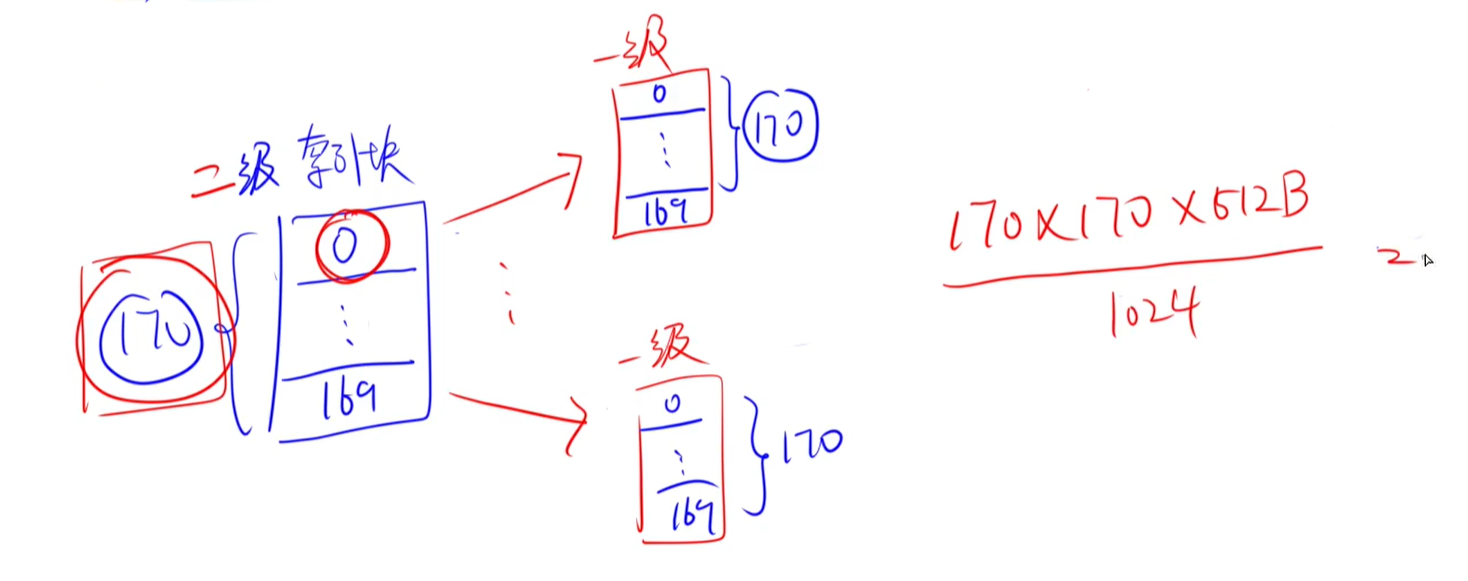 二级索引块
170
0
⋮
169
一级
0
⋮
169
170
⋮
一级
0
⋮
169
170
170×170×512B
1024
=